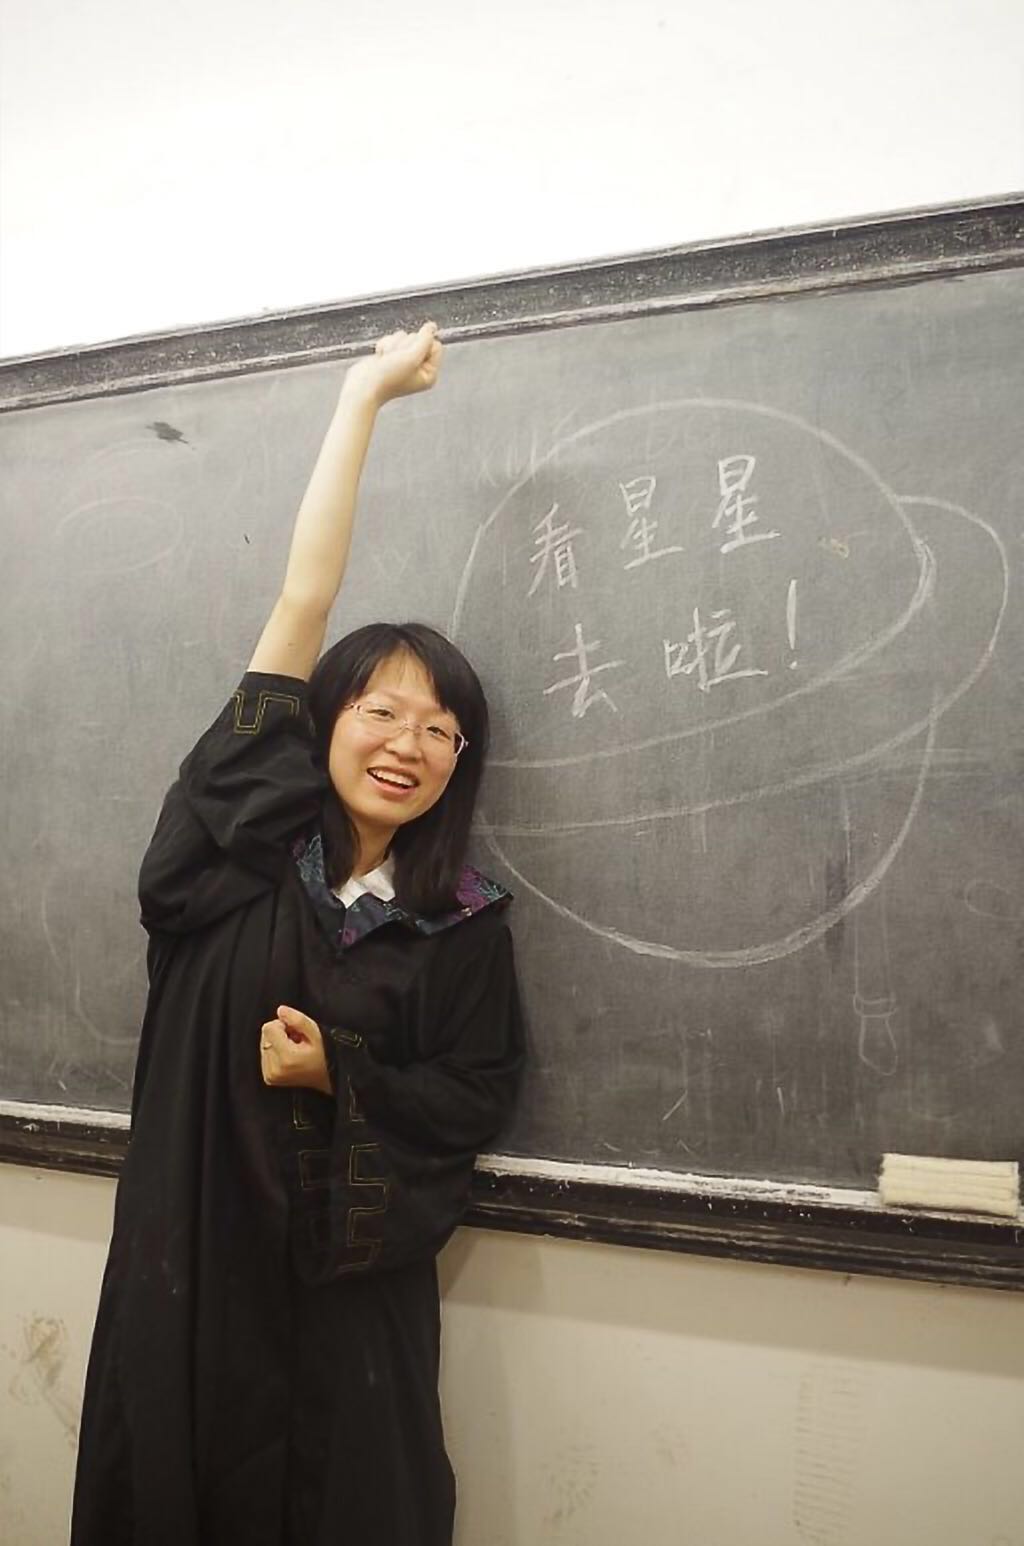 看星星
去啦！